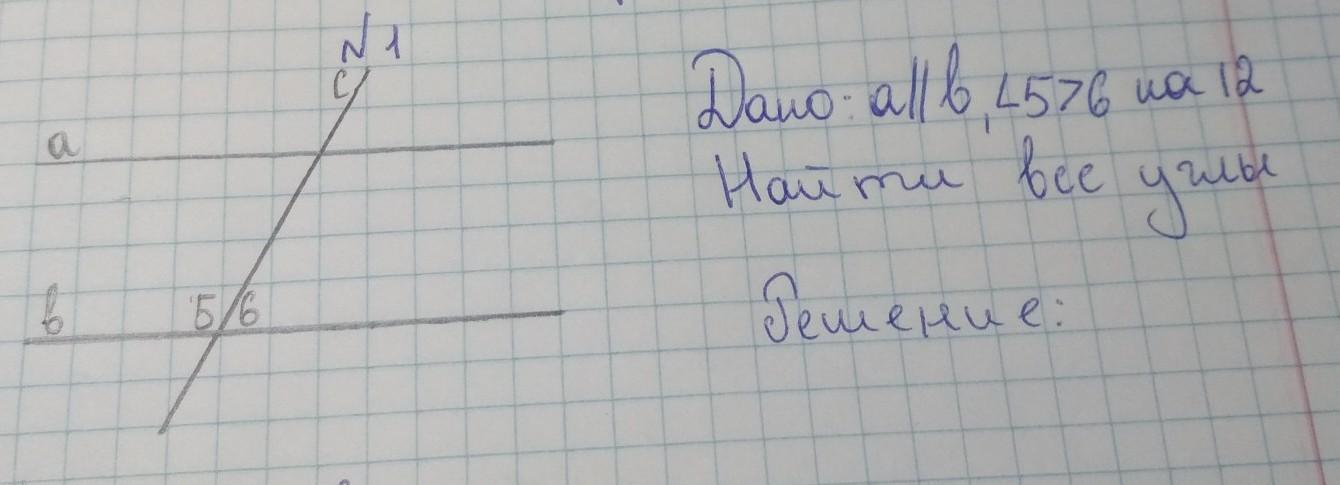 N1
c
a
Дано: a||b, <5>6 на 12
Найти все углы
в
5 6
Решение: